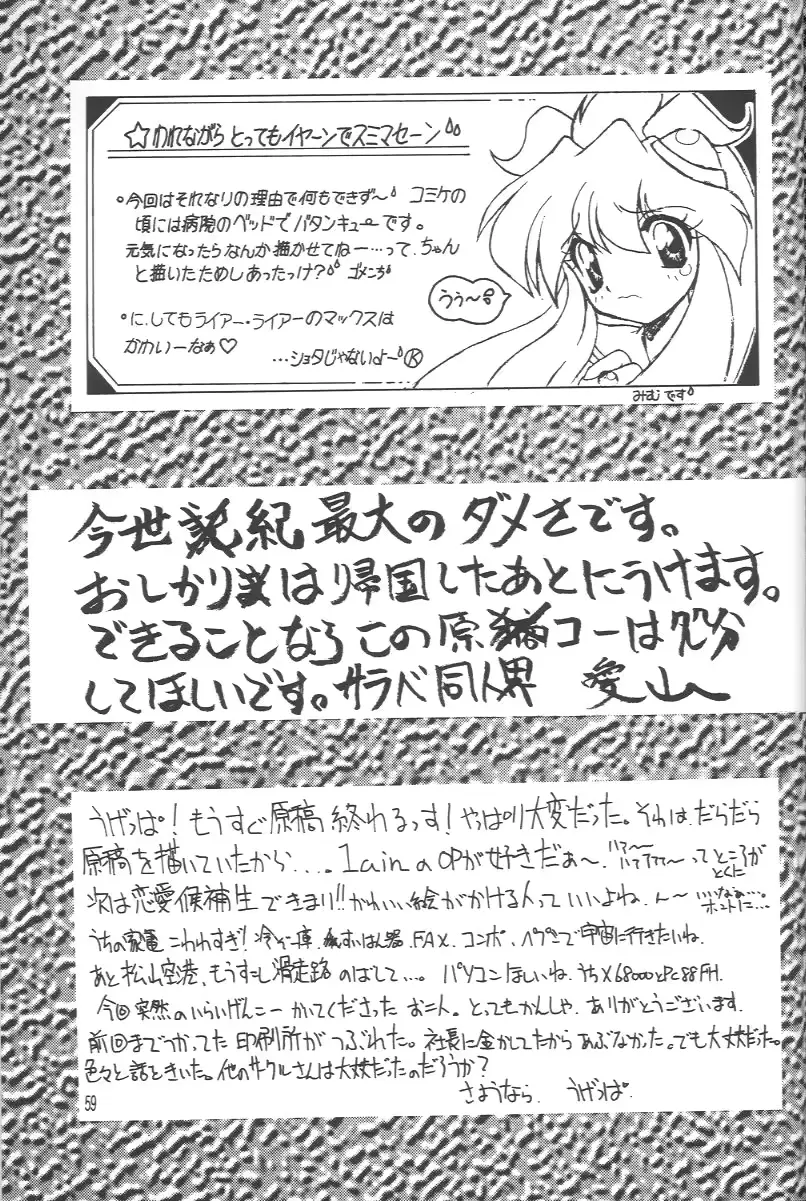 ☆われながら とってもイヤ〜ンでスミマセーン
•今回はそれなりの理由で何もできず〜 コミケの
頃には病院のベッドでバタンキューです。
元気になったらなんか描かせてねー…って、ちゃん
と描いたためしあったっけ? ゴメンち
•に、してもライアー・ライアーのマックスは
かわいーなぁ♡
…ショタじゃないよー Ⓚ
うぅ〜
みむ です
今世紀最大のダメさです。
おしかりは帰国したあとにうけます。
できることならこの原コーは処分
してほしいです。サラバ同人界 愛山
うげっぱ!もうすぐ原稿終れるっす!やっぱり大変だった。それは、だらだら
原稿を描いていたから....。lainのOPが好きだぁ〜. ってところが
とくに
次は恋愛候補生できまり!!かわいい絵がかける人っていいよね.ん〜 いいなぁ…。
ホントに…
うちの家電こわれすぎ!冷ぞー庫.すいはん器.FAX.コンポ、 で宇宙に行きたいね.
あと松山空港、もうすこし滑走路のばして…。 パソコンほしいね.うちX68000とPc88FH.
今回突然のいらいげんこー かいてくださった お二人。とってもかんしゃ. ありがとうございます.
前回までつかってた印刷所がつぶれた。社長に金かしてたからあぶなかった。でも大丈夫だった。
色々と話をきいた。他のサークルさんは大丈夫だったのだろうか?
さようなら. うげっぱ.
59